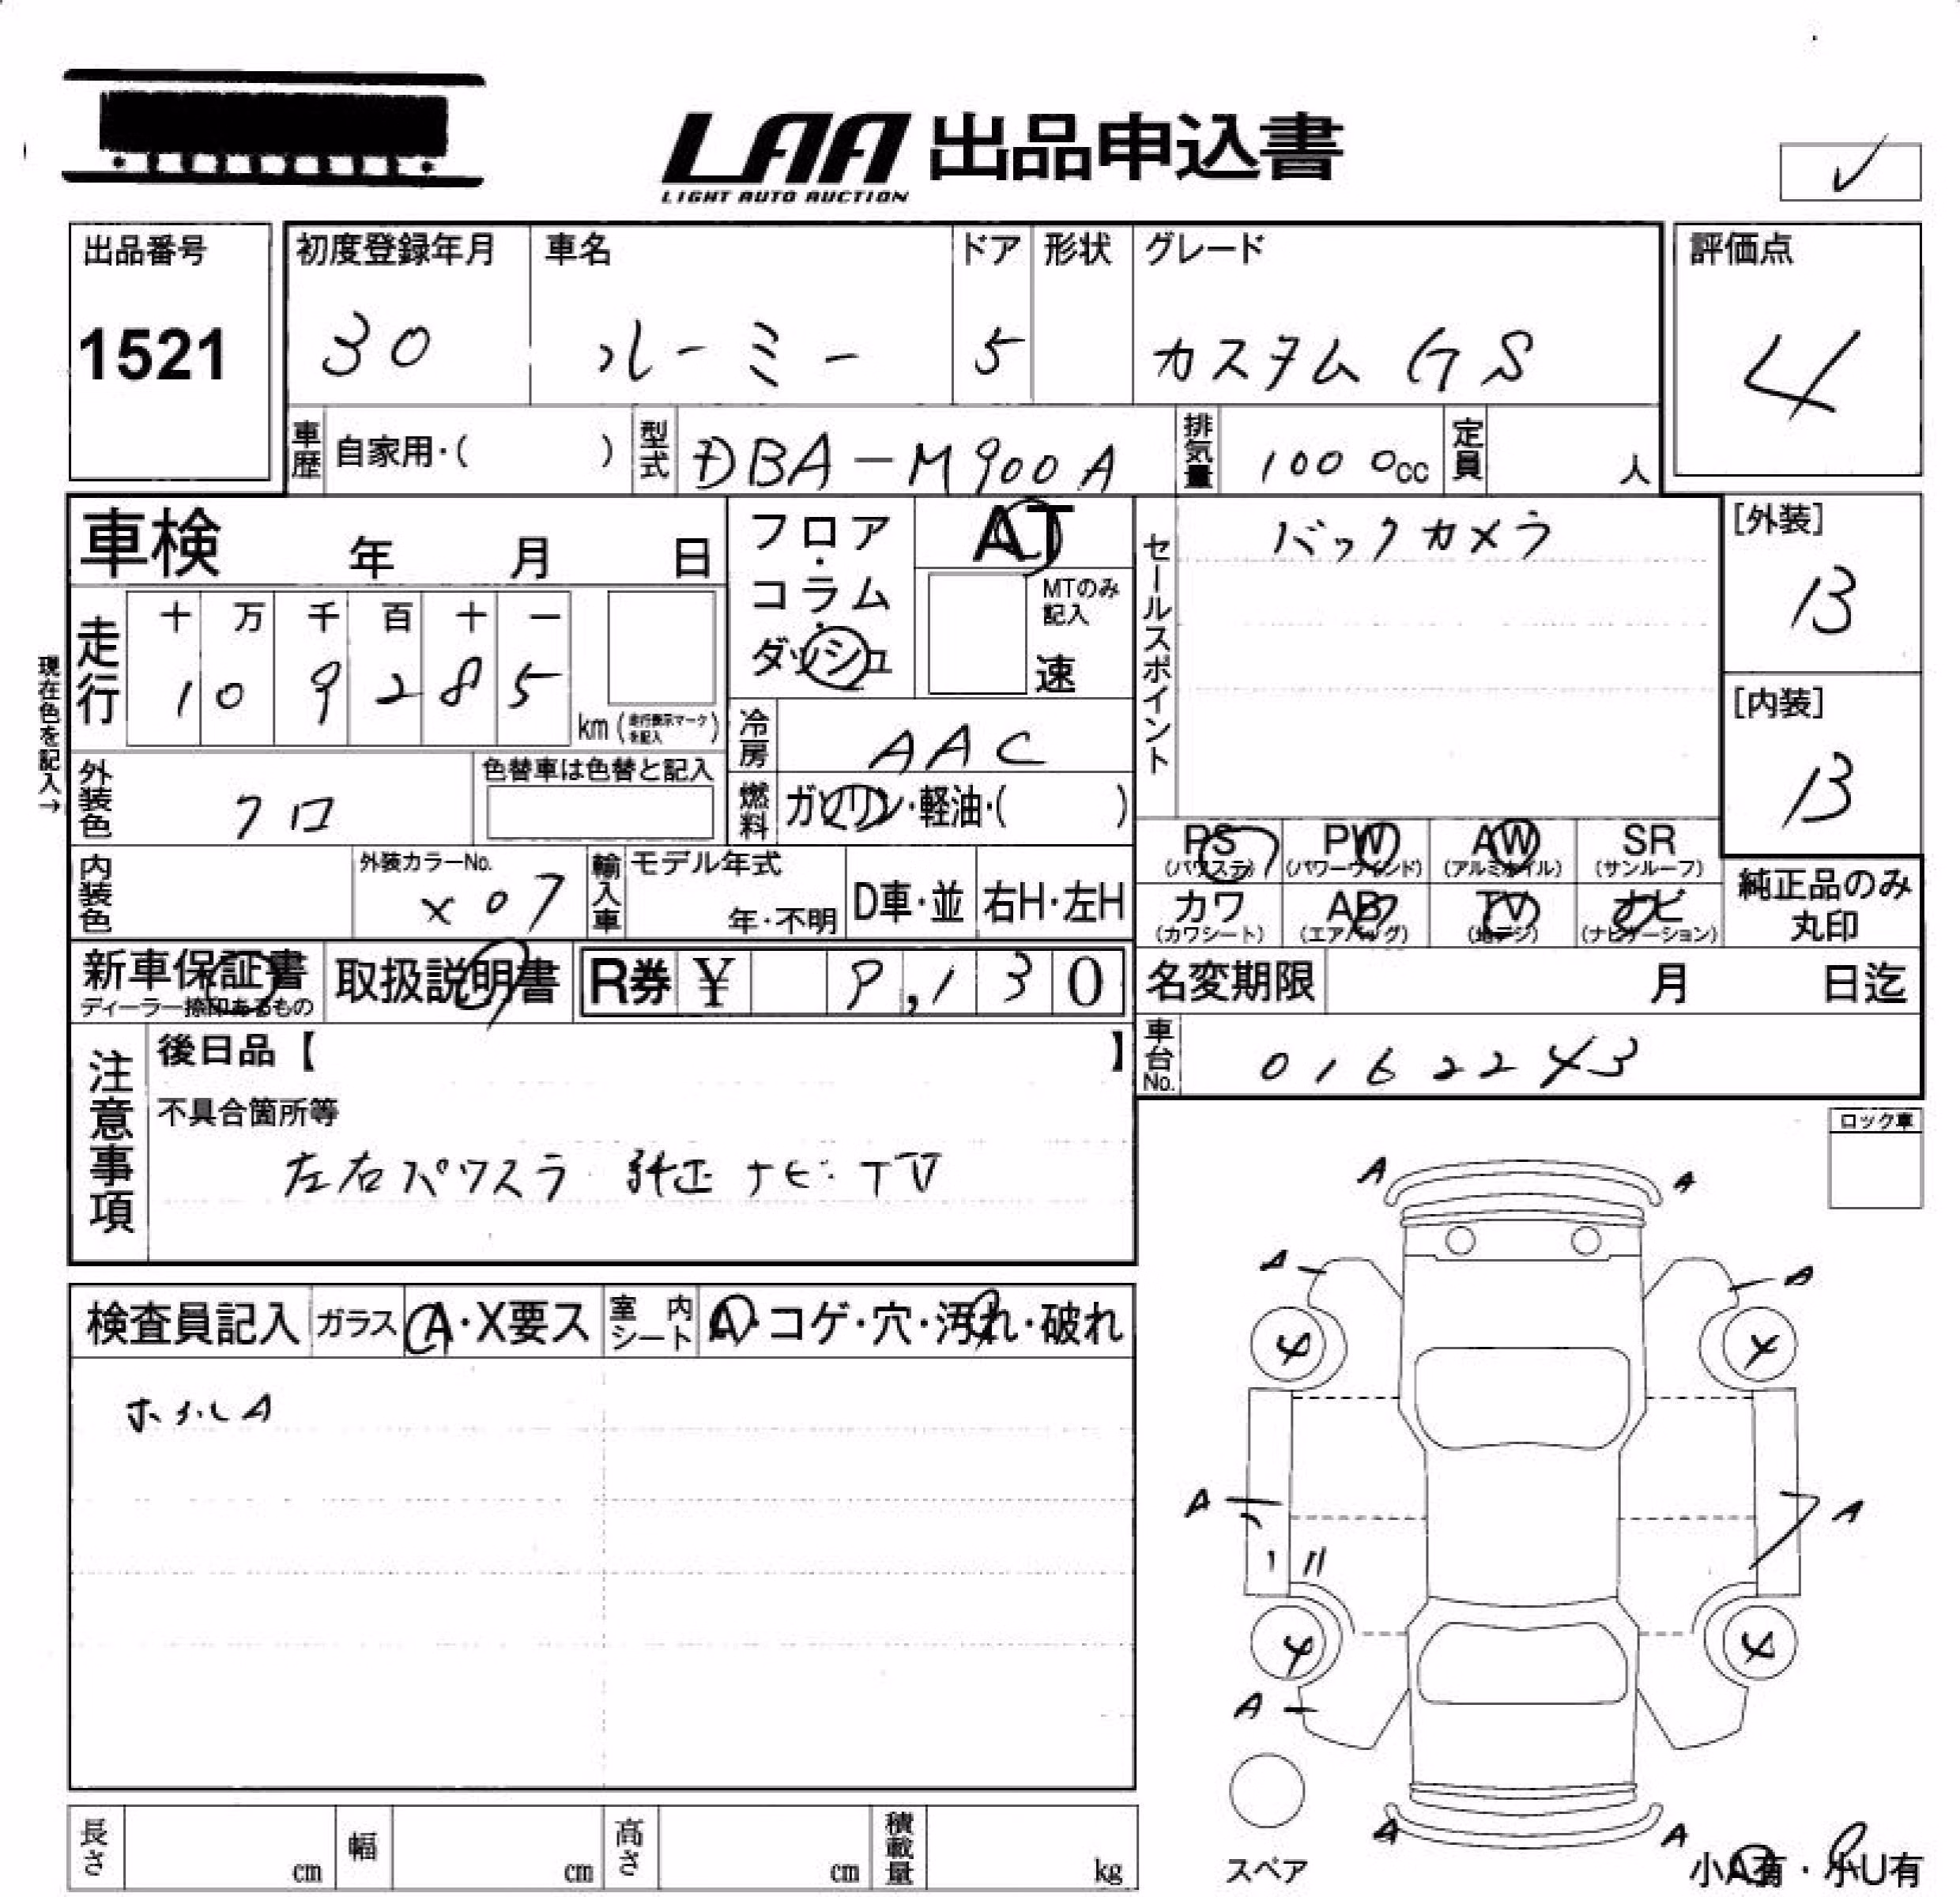 LAA 出品申込書
LIGHT AUTO AUCTION
✓
出品番号
1521
初度登録年月 車名 ドア 形状 グレード
30 ルーミー 5 カスタム GS
評価点
4
車歴 自家用・( ) 型式 DBA-M900A 排気量 1000cc 定員 人
車検 年 月 日
フロア・コラム・ダッシュ
AT
MTのみ記入
速
セールスポイント
バックカメラ
[外装]
B
[内装]
B
現在色を記入→
走行 十 万 千 百 十 一
1 0 9 2 8 5
km(走行表示マークを記入)
冷房 AAC
外装色 クロ 色替車は色替と記入
燃料 ガソリン・軽油・( )
PS PW AW SR
(パワステ) (パワーウィンド) (アルミホイル) (サンルーフ)
カワ AB TV ナビ
(カワシート) (エアバッグ) (地デジ) (ナビゲーション)
純正品のみ
丸印
内装色 外装カラーNo. X07 輸入車 モデル年式 年・不明 D車・並 右H・左H
新車保証書
ディーラー捺印あるもの
取扱説明書 R券 ¥ 9,130
名変期限 月 日迄
車台No. 0162243
注意事項
後日品【 】
不具合箇所等
左右パワスラ 純正ナビ・TV
ロック車
A A
A A
4 4
A A
4 4
A
A A
検査員記入 ガラス A・X要ス 室内シート A・コゲ・穴・汚れ・破れ
ホイルA
スペア
小A有・小U有
長さ cm 幅 cm 高さ cm 積載量 kg